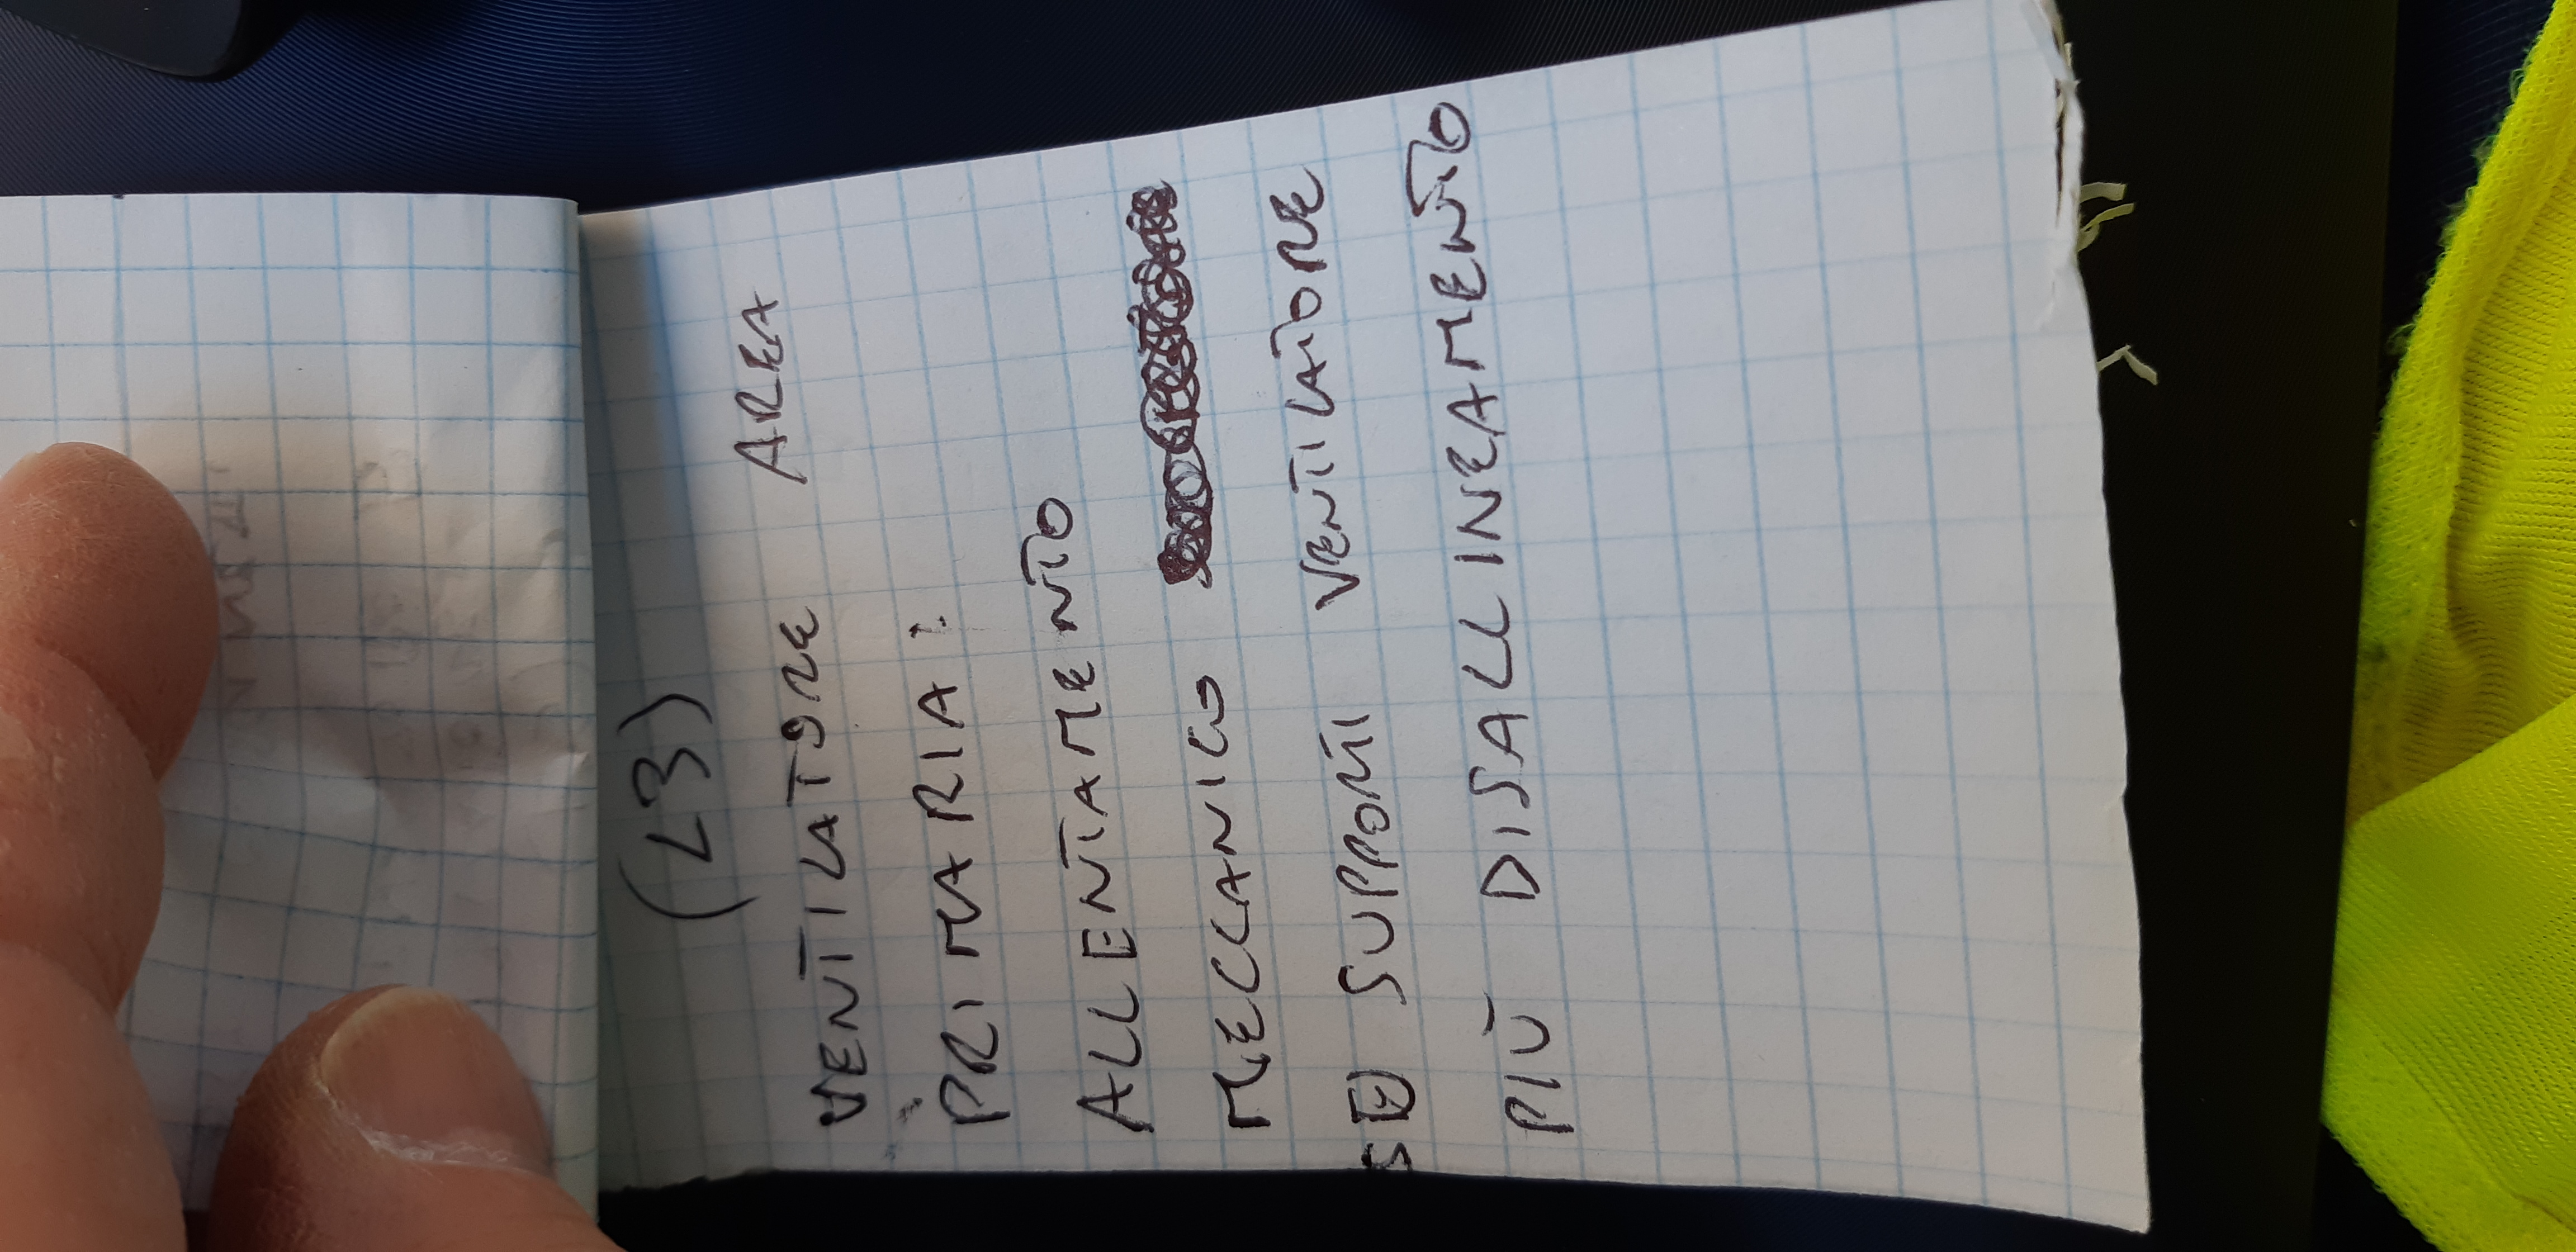 (L3)
VENTILATORE AREA
PRIMARIA:
ALLENTAMENTO
MECCANICO
SUPPORTI VENTILATORE
PIÙ DISALLINEAMENTO